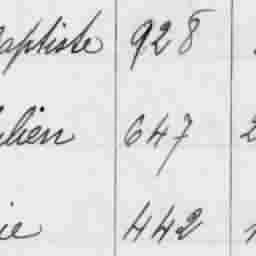 aptiste 928
lien 647 2
ie 442